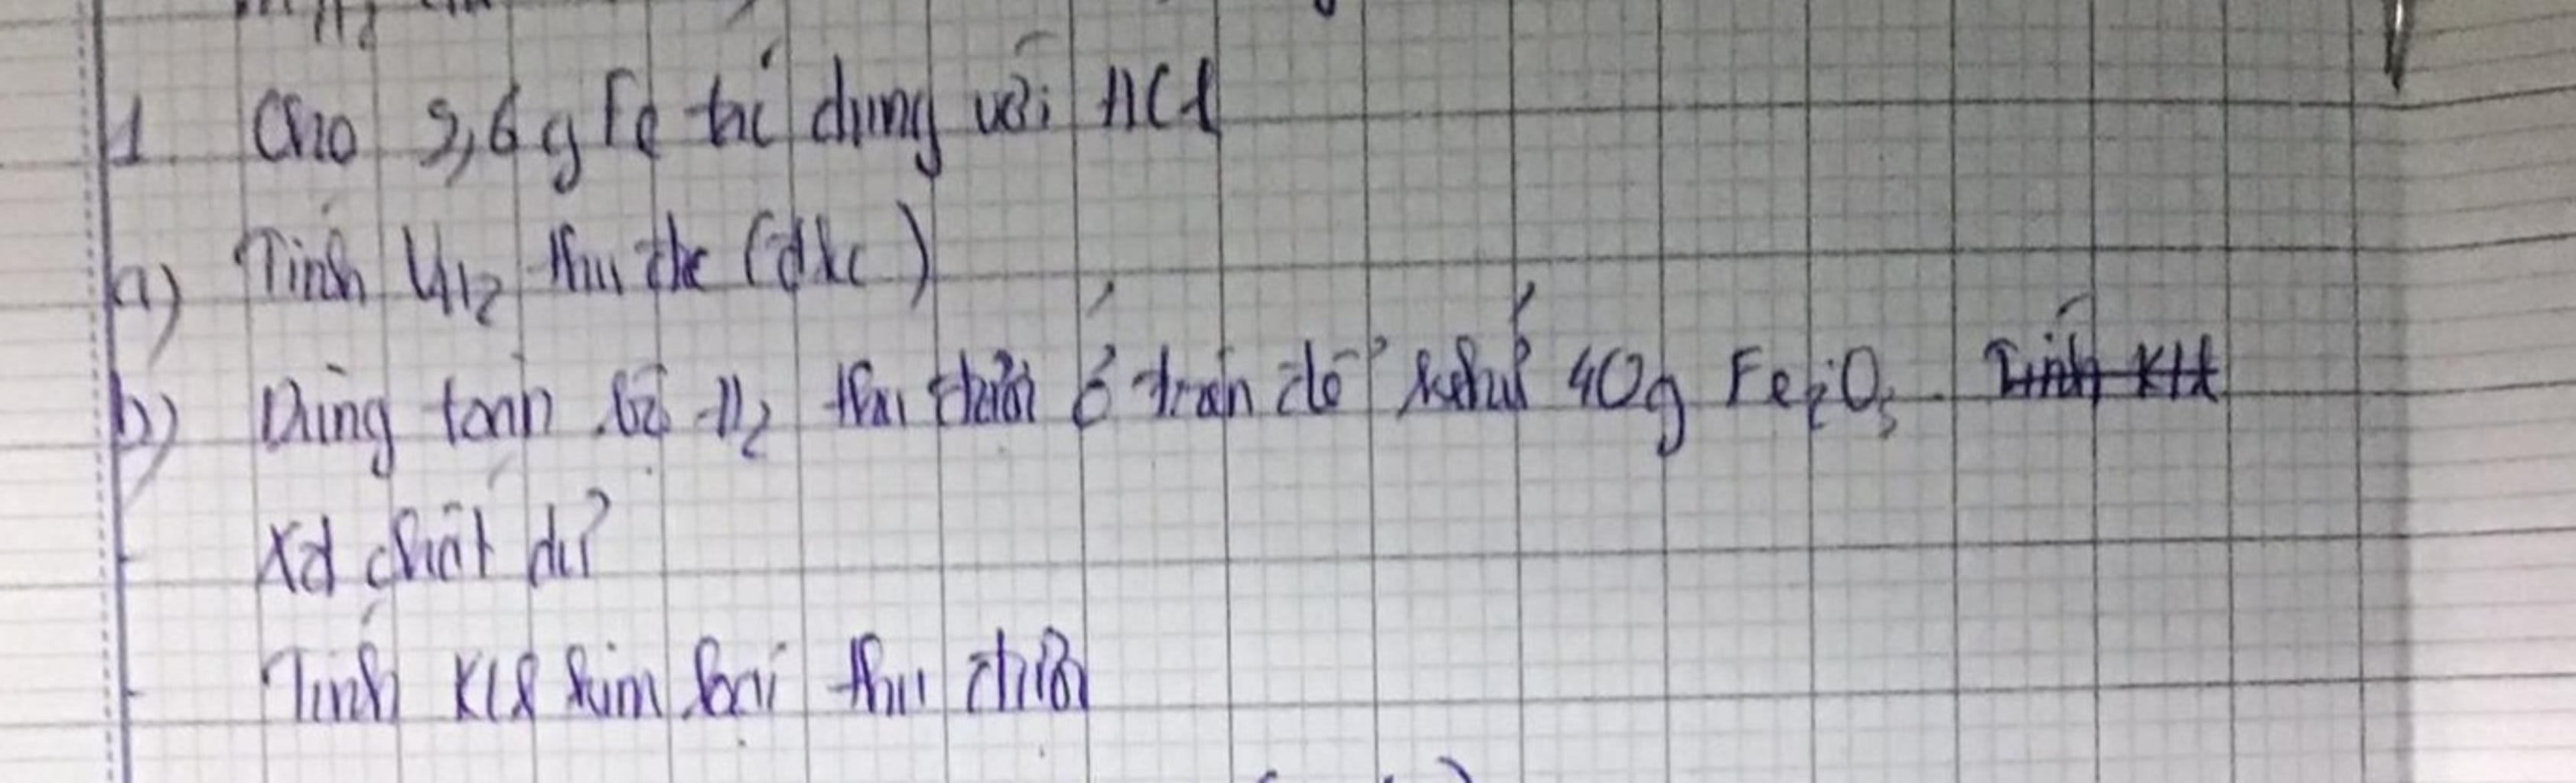 1 Cho 5,6 g Fe tác dụng với HCl
a) Tính VH2 thu đc (đkc)
b) Dùng toàn bộ H2 thu được ở trên để khử 40g Fe2O3. Tính KLK
- Xđ chất dư?
- Tính KLg kim loại thu được